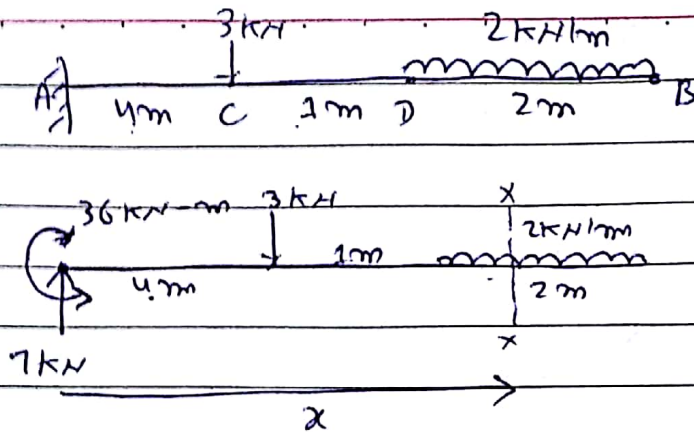 3KN 2KN/m
A 4m C 1m D 2m B
36 KN-m 3KN X
2KN/m
4m 1m 2m
X
7KN
x